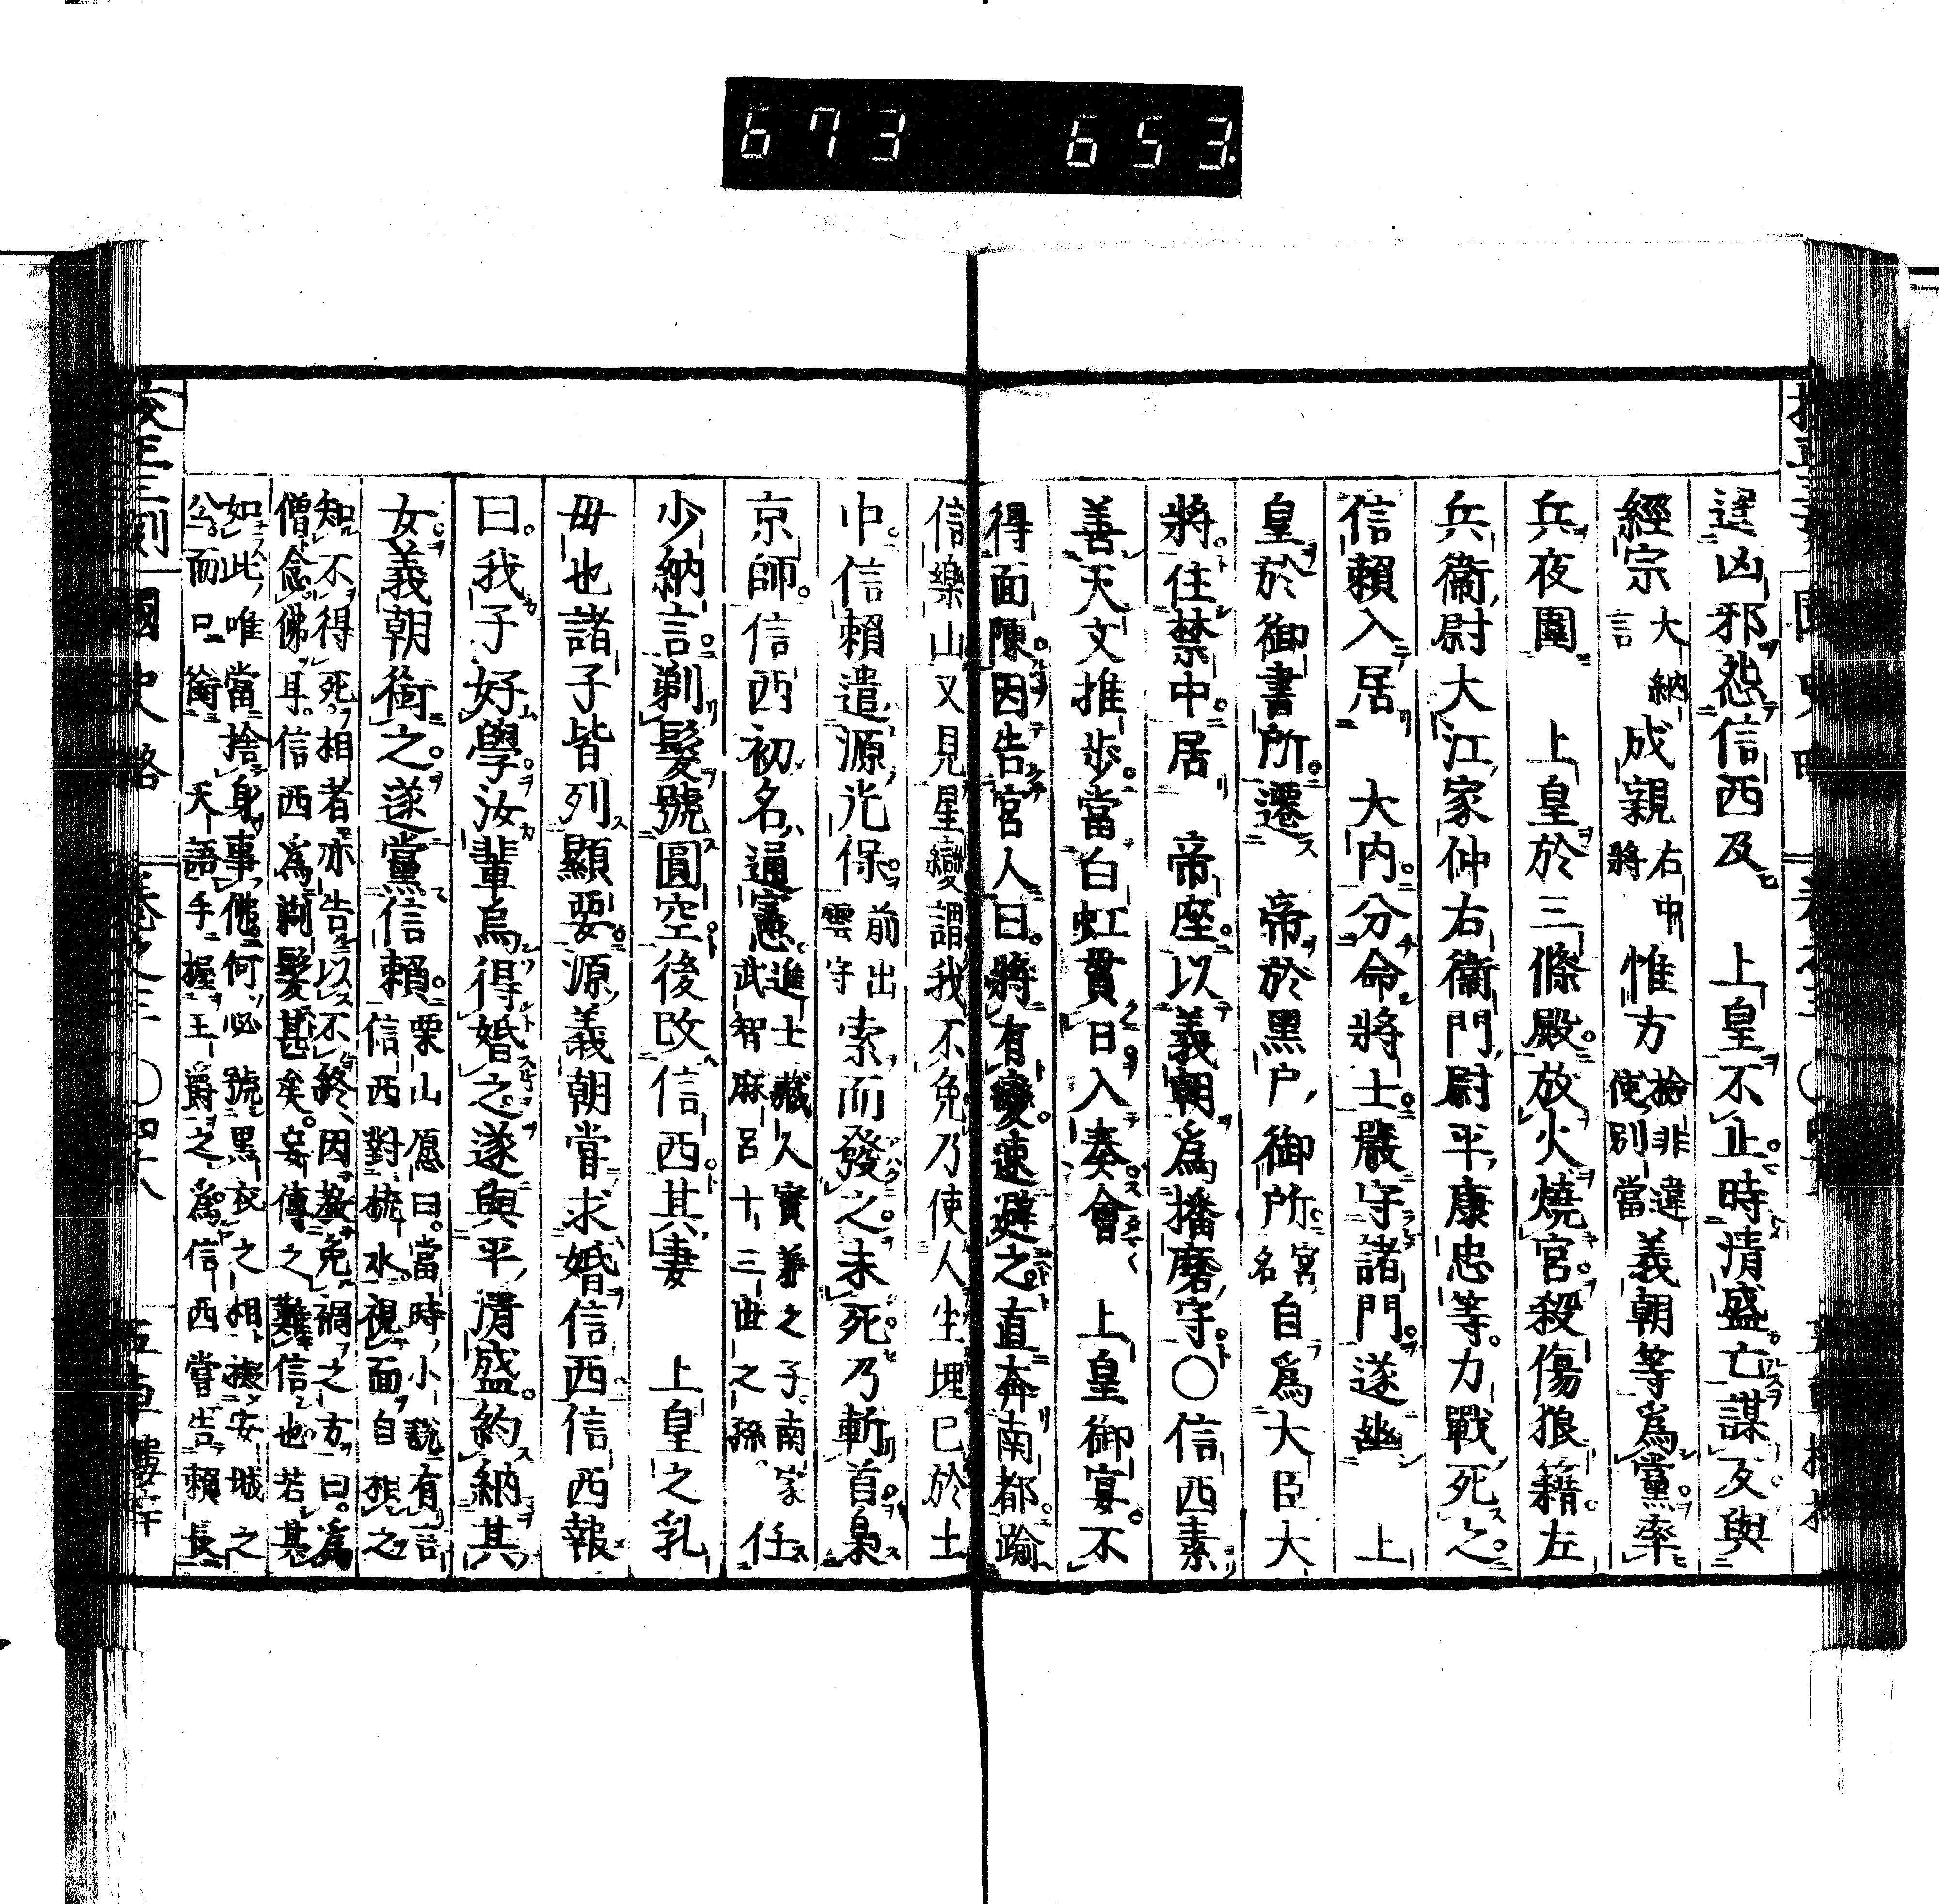 673 653
逞凶邪怨信西及 上皇不止時清盛亡謀反與
經宗大納言成親右中將惟方檢非違使別當義朝等爲黨率
兵夜圍 上皇於三條殿放火燒宮殺傷狼籍左
兵衞尉大江家仲右衞門尉平康忠等力戰死之
信賴入居 大内分命將士嚴守諸門遂幽 上
皇於御書所遷 帝於黒戸御所宮名自爲大臣大
將住禁中居 帝座以義朝爲播磨守○信西素
善天文推步當白虹貫日入奏會 上皇御宴不
得面陳因告宮人曰將有變速避之直奔南都踰
信樂山又見星變謂我不免乃使人生埋已於土
中信賴遣源光保前出雲守索而發之未死乃斬首梟
京師信西初名通憲進士藏人實兼之子南家武智麻呂十三世之孫任
少納言剃髮號圓空後改信西其妻 上皇之乳
毋也諸子皆列顯要源義朝嘗求婚信西信西報
曰我子好學汝輩烏得婚之遂與平淸盛約納其
女義朝銜之遂黨信賴栗山愿曰當時小説有言信西對梳水視面自相之
知不得死相者亦告以不終因教免禍之方曰爲
僧念佛耳信西爲剃髮甚矣妄傳之難信也若其
如此唯當捨身事佛何必號黒衣之相接安城之
公而口銜 天語手握王爵之爲信西嘗告賴長
國史略 卷之三 ○四十八 五車樓梓